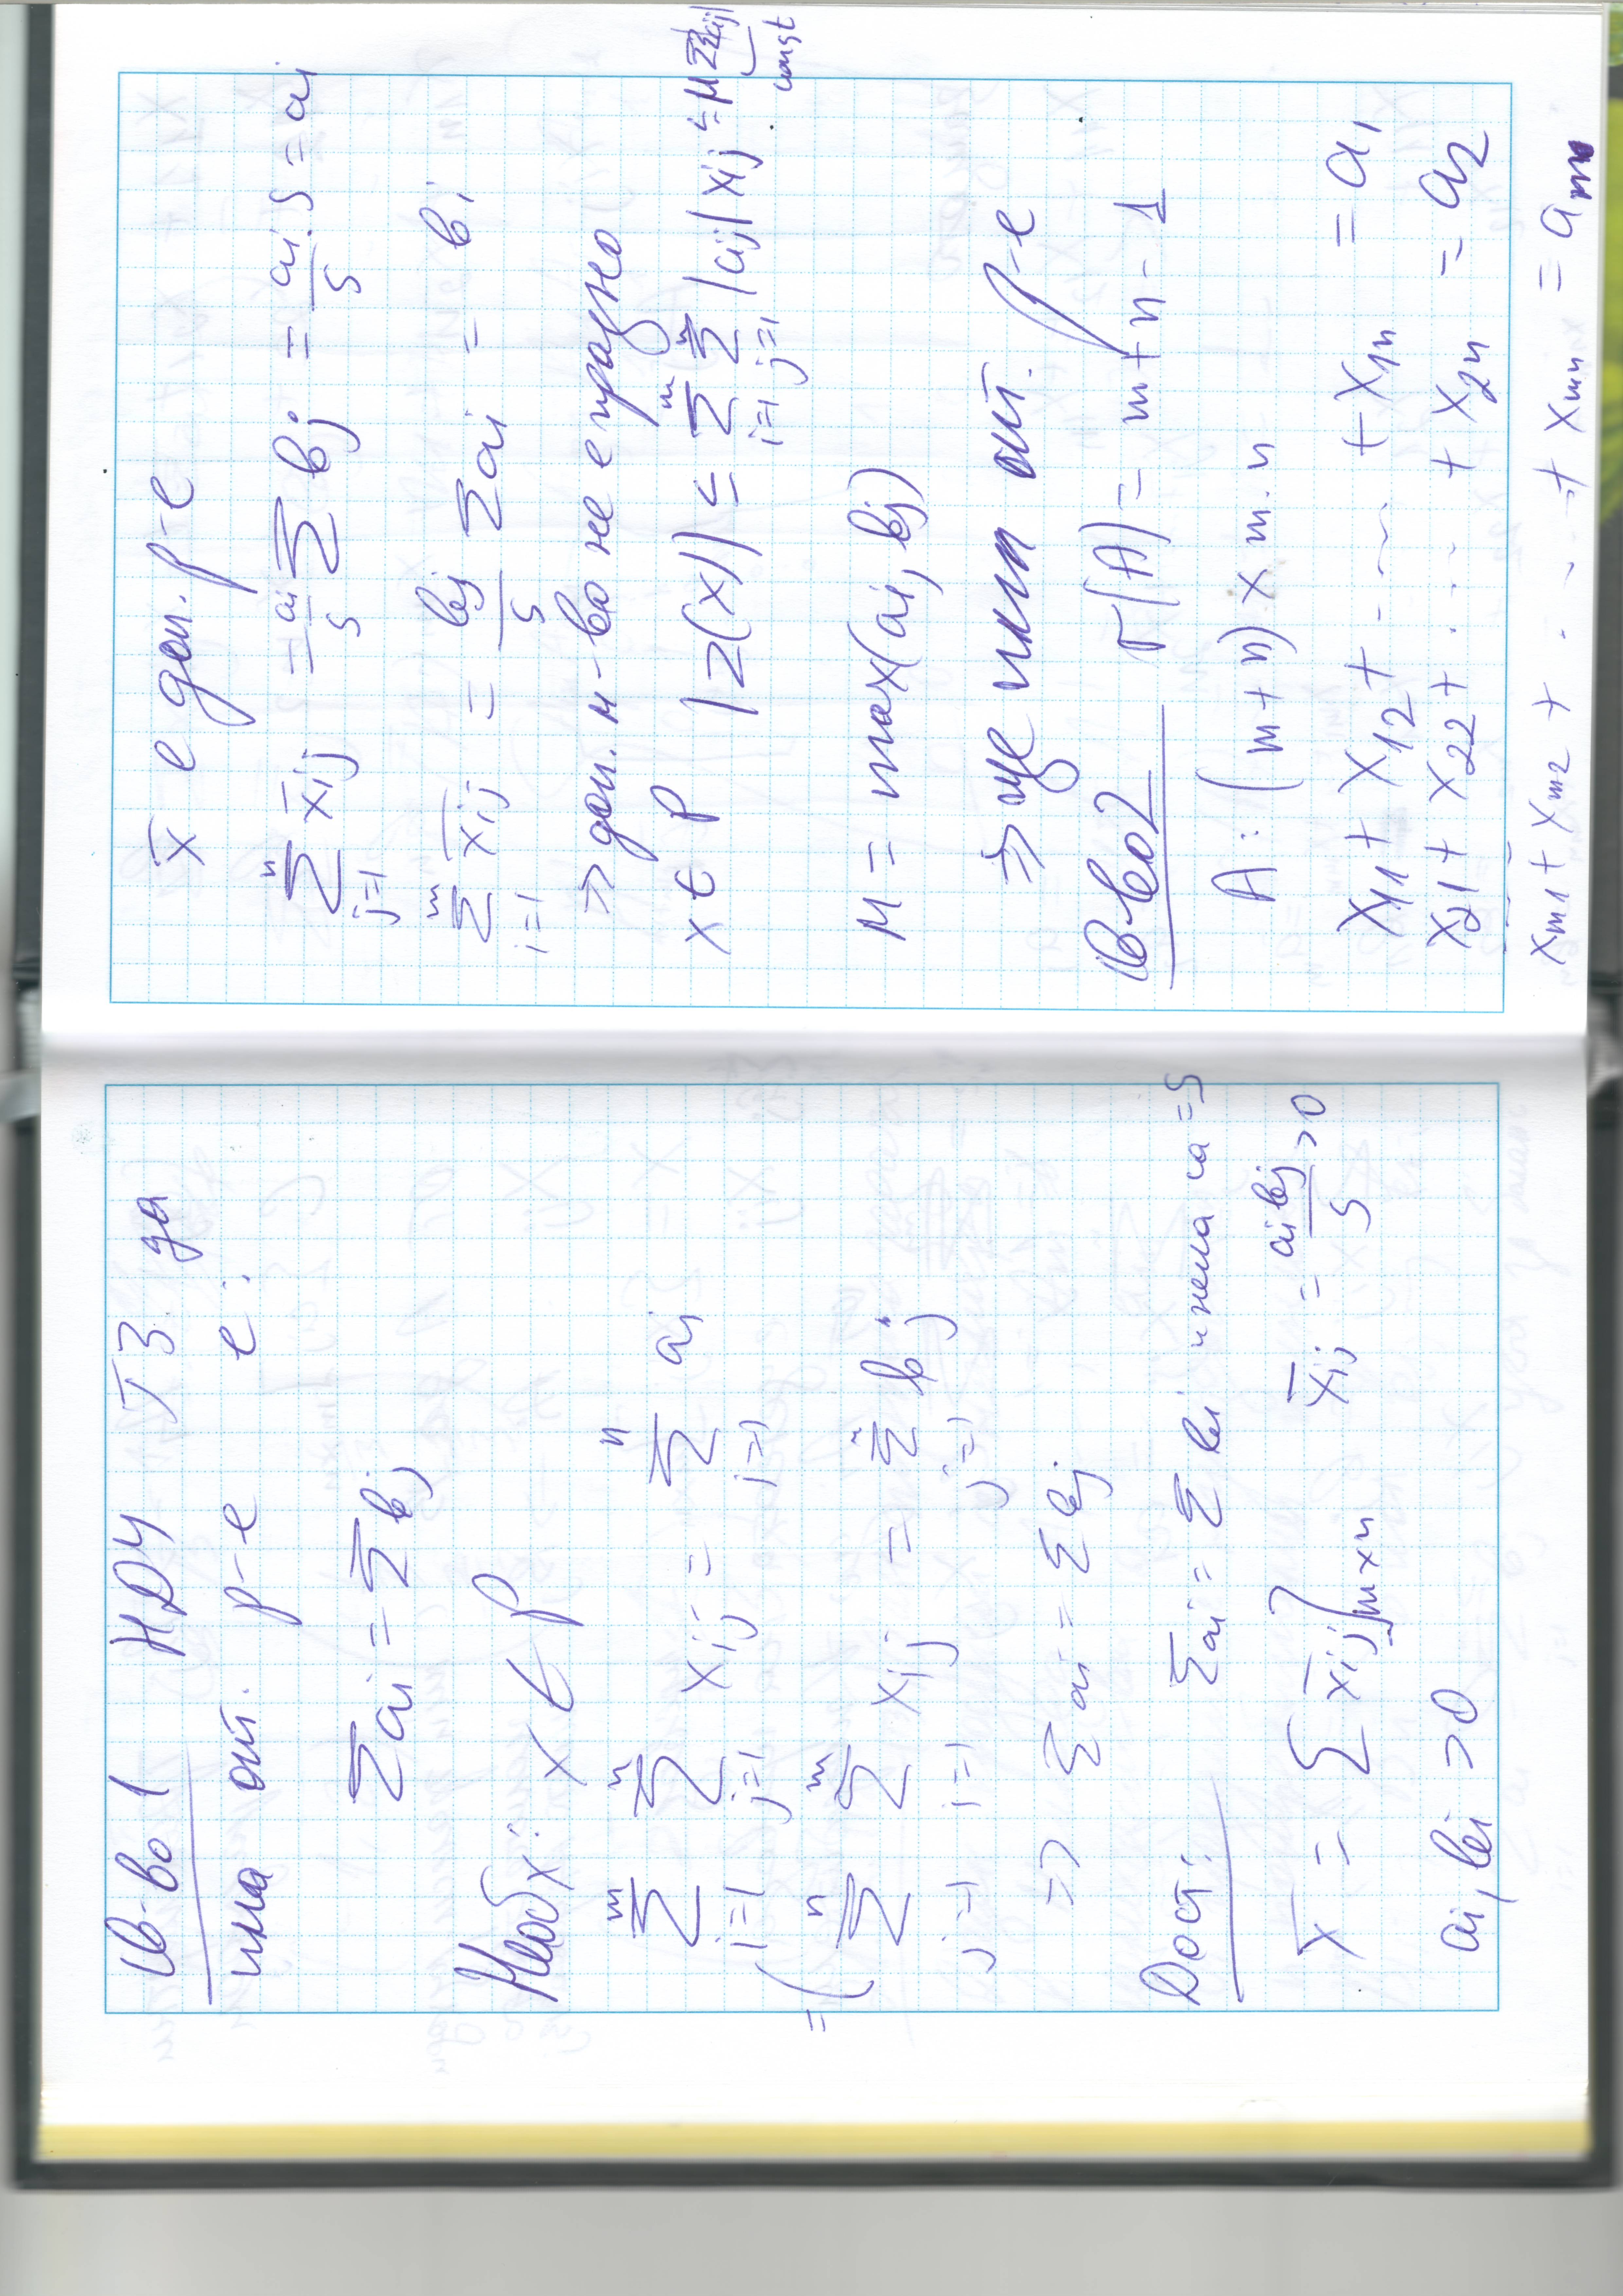 Св-во 1 НДУ ТЗ да
има опт. р-е е:
∑ai = ∑bj
Необх: x ∈ P
∑_{i=1}^{m} ∑_{j=1}^{n} xij = ∑_{i=1}^{n} ai
=( ∑_{j=1}^{n} ∑_{i=1}^{m} xij = ∑_{j=1}^{n} bj
=> ∑ai = ∑bj
Дост: ∑ai = ∑bi нека са = S
x̄ = {x̄ij}m×n x̄ij = aibj/S >0
ai, bi >0
x̄ е доп. р-е
∑_{j=1}^{n} x̄ij = ai/S ∑bj = ai/S . S = ai
∑_{i=1}^{m} x̄ij = bj/S ∑ai = bj
=> доп. м-во не е празно
x ∈ P |z(x)| ≤ ∑_{i=1}^{m} ∑_{j=1}^{n} |cij| xij ≤ M∑∑|cij|
const
M = max(ai, bj)
=> ще има опт. р-е
Св-во2 r(A) = m+n-1
A: (m+n) x m.n
x11 + x12 + .... + x1n = a1
x21 + x22 + .... + x2n = a2
xm1 + xm2 + .... + xmn = am